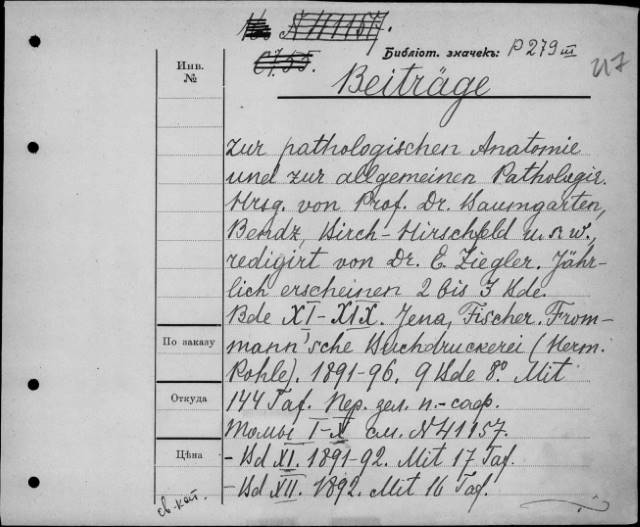 Библіот. значекъ: P 279 III
Инв.
№
Beiträge
zur pathologischen Anatomie
und zur allgemeinen Pathologie.
Hrsg. von Prof. Dr. Baumgarten,
Bendz, Birch-Hirschfeld u. s. w.,
redigirt von Dr. E. Ziegler. Jähr-
lich erscheinen 2 bis 3 Bde.
Bde XI-XIX. Jena, Fischer. From-
По заказу
mann'sche Buchdruckerei (Herm.
Pohle). 1891-96. 9 Bde 8º. Mit
Откуда
144 Taf. Пер. зел. п.-саф.
Томы I-X см. N 41157.
Цѣна
- Bd XI. 1891-92. Mit 17 Taf.
- Bd XII. 1892. Mit 16 Taf.
св.-кат.